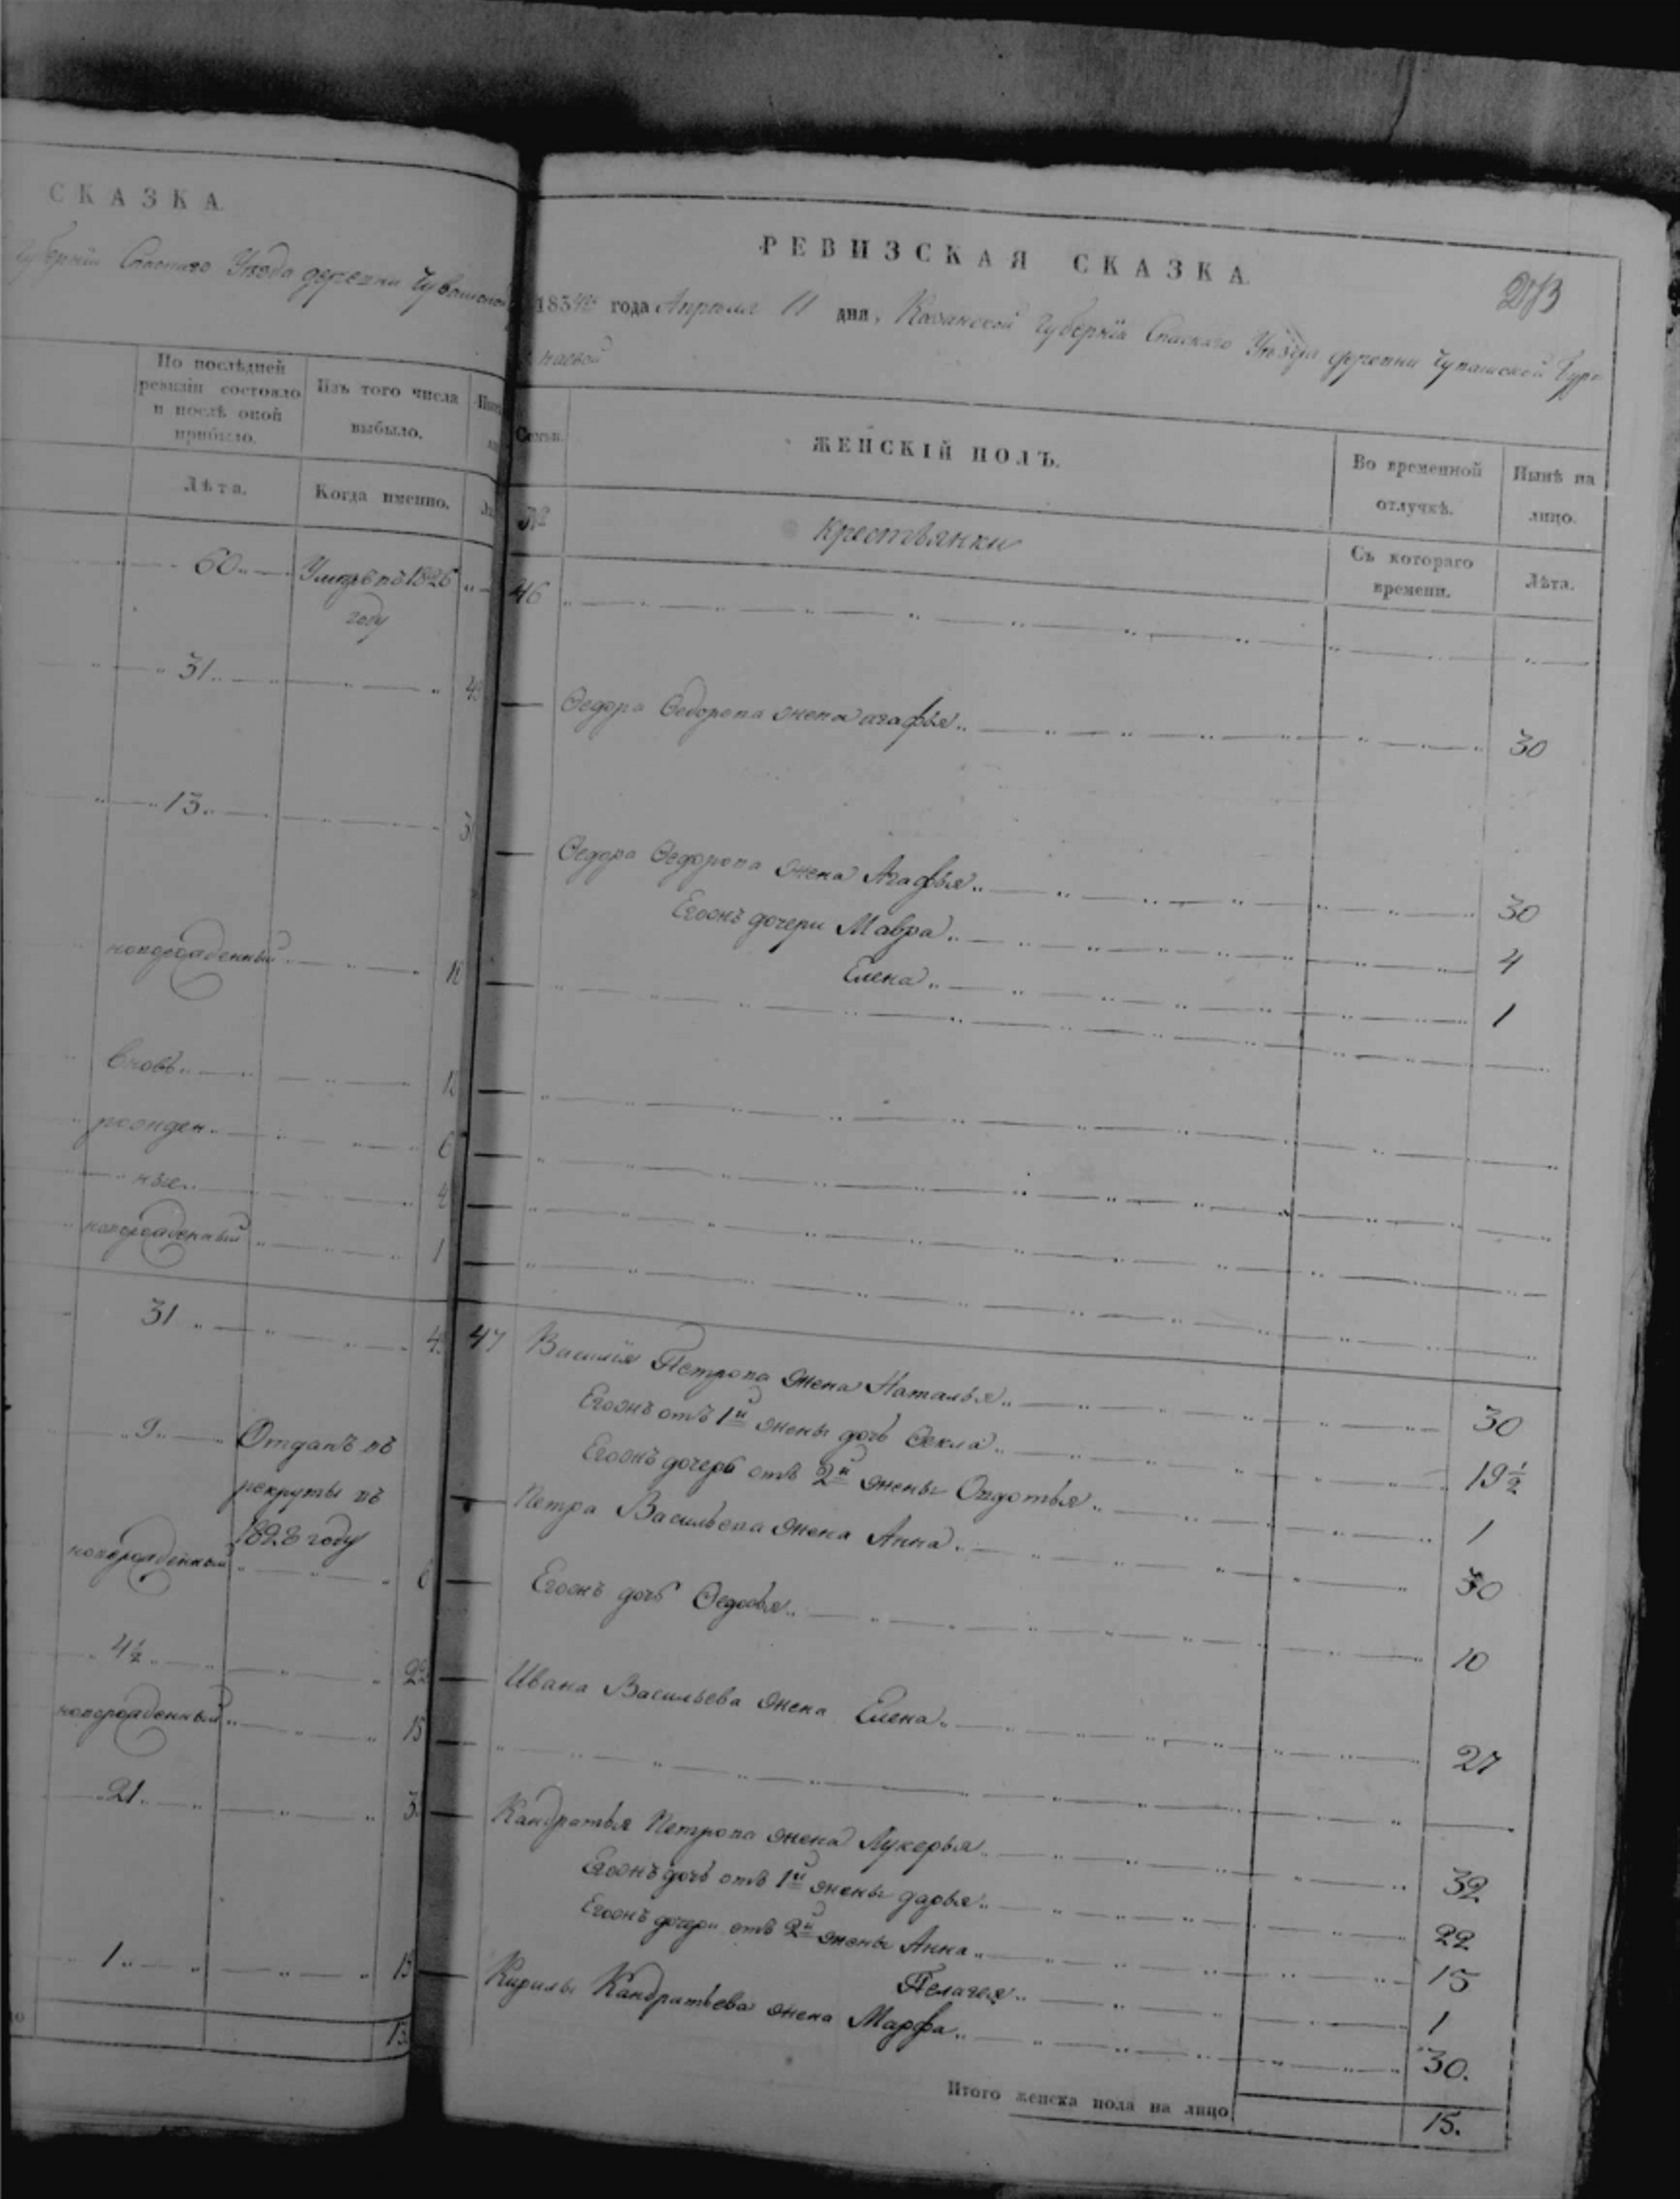 СКАЗКА
Губерніи Спаскаго Уѣзда деревни Чувашской
По послѣдней
ревизіи состояло
и послѣ оной
прибыло.
Изъ того числа
выбыло.
Лѣта.
Когда именно.
60
Умеръ въ 1826
году
31
13
новорожденный
вновь
рожден
ные
новорожденный
1
31
9
Отданъ въ
рекруты въ
1828 году
новорожденный
4½
новорожденный
15
21
1
РЕВИЗСКАЯ СКАЗКА
1834го года Апреля 11 дня, Казанской Губерніи Спаскаго Уѣзда деревни Чувашской Бур=
наевой
Семьи.
ЖЕНСКІЙ ПОЛЪ.
Во временной
отлучкѣ.
Нынѣ на
лицо.
№
Крестьянки
Съ котораго
времени.
Лѣта.
46
Ѳедора Ѳедорова жена агафья 30
Ѳедора Ѳедорова жена Агафья 30
Егожъ дочери Мавра 4
Елена 1
47 Василія Петрова жена Наталья 30
Егожъ отъ 1й жены дочь Ѳекла 19½
Егожъ дочерь отъ 2й жены Овдотья 1
Петра Васильева жена Анна 30
Егожъ дочь Ѳедосья 10
Ивана Васильева жена Елена 27
Кандратья Петрова жена Лукерья 32
Егожъ дочь отъ 1й жены дарья 22
Егожъ дочери отъ 2й жены Анна 15
Пелагея 1
Кирилы Кандратьева жена Марфа 30.
Итого женска пола на лицо 15.